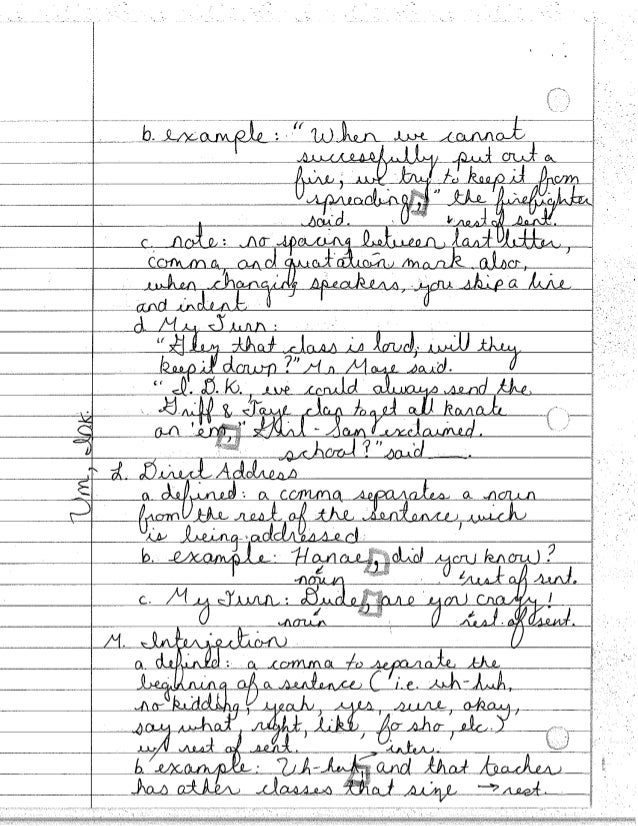 b. example: "When we cannot
successfully put out a
fire, we try to keep it from
spreading," the firefighter
said. rest of sent.
c. note: no spacing between last letter,
comma, and quatation mark. also,
when changing speakers, you skip a line
and indent
d. My Turn:
"Hey that class is loud, will they
keep it down?" Mr. Mase said.
"I.D.K., we could always send the
Griff & Jaye clan to get all karate
on 'em," Girl-Sam exclaimed.
school?" said ____.
Um, Idk.
L. Direct Address
a. defined: a comma separates a noun
from the rest of the sentence, wich
is being addressed
b. example: Hanae, did you know?
noun rest of sent.
c. My Turn: Dude, are you crazy!
noun rest of sent.
M. Interjection
a. defined: a comma to separate the
beginning of a sentence (i.e. uh-huh,
no kidding, yeah, yes, sure, okay,
say what, right, like, fo sho, etc.)
w/ rest of sent. inter.
b. example: Uh-huh, and that teacher
has other classes that size → rest.